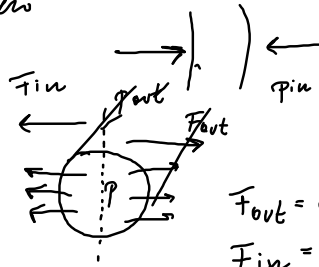 Pin
Fin Pout
Fout
P
Fout =
Fin =